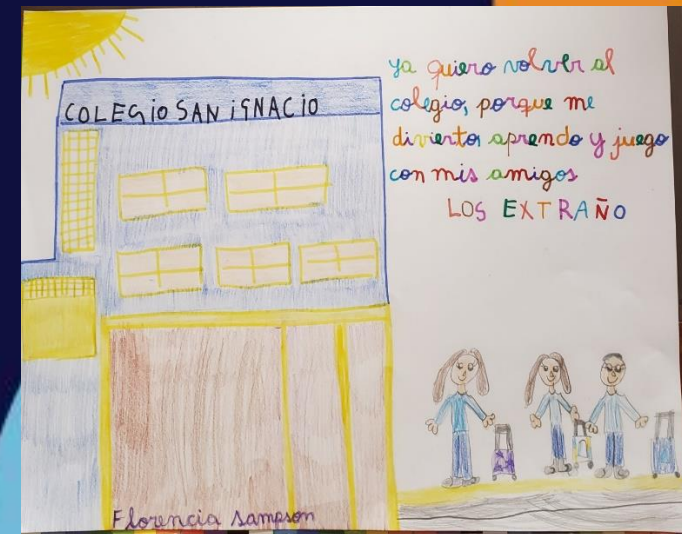 COLEGIO SAN IGNACIO
ya quiero volver al
colegio, porque me
divierto aprendo y juego
con mis amigos
LOS EXTRAÑO
Florencia Sampson